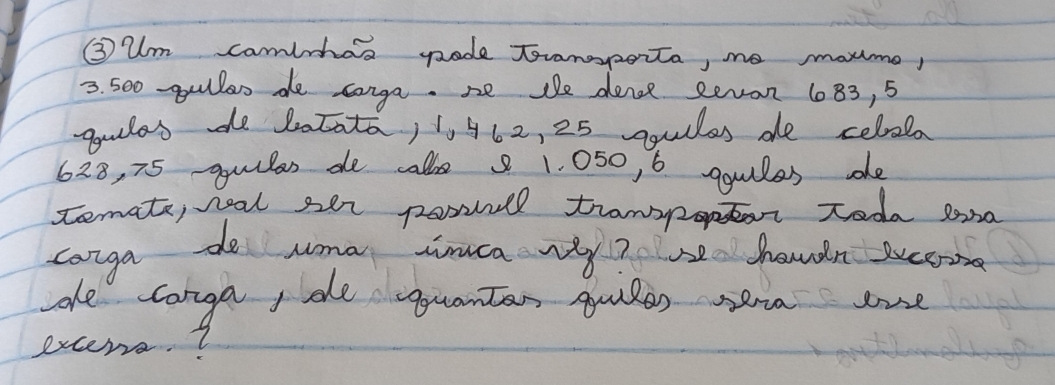 ③ Um caminhão pode transporta, no maximo,
3.500 quilos de carga. se ele deve levar 683,5
quilos de batata, 1,462,25 quilos de cebola
628,75 quilos de alho e 1.050,6 quilos de
tomate, real ser possivell transportar toda essa
carga de uma única vez? se houver excesso
de carga, de quantos quilos sera esse
excesso.?